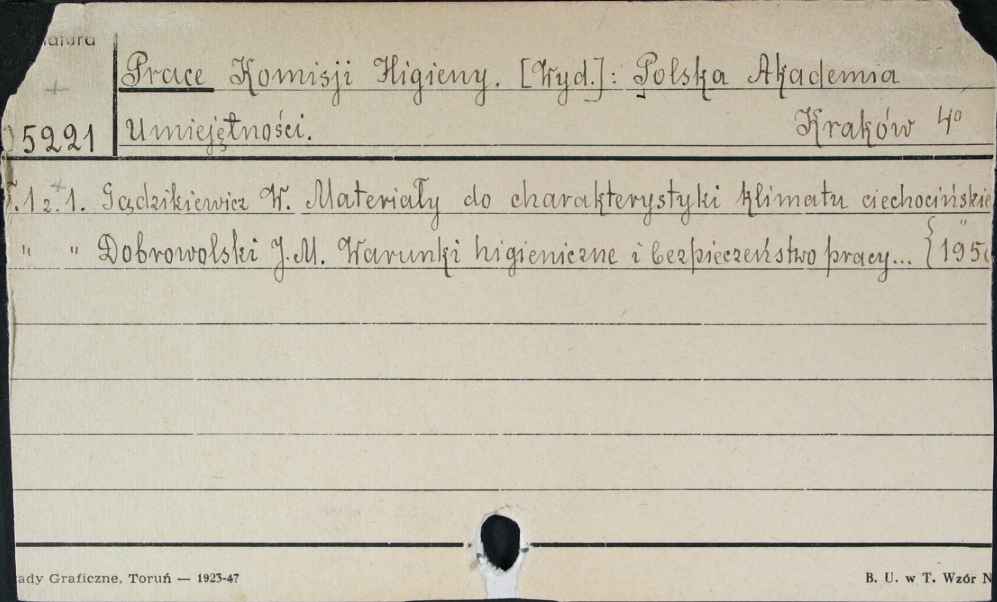 natura
Prace Komisji Higieny. [Wyd.]: Polska Akademia
05221 Umiejętności. Kraków 4º
T.1 z.1. Gądzikiewicz W. Materiały do charakterystyki klimatu ciechocińskie
" " Dobrowolski J.M. Warunki higieniczne i bezpieczeństwo pracy... {195
ady Graficzne, Toruń — 1923-47 B. U. w T. Wzór N